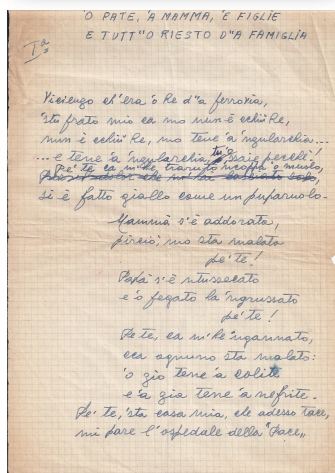 'O PATE, 'A MAMMA, 'E FIGLIE
E TUTT''O RIESTO D''A FAMIGLIA
Iª
Viciengo ch'era 'o Re d''a ferrovia,
'stu frato mio ca mo nun è cchiù Re,
nun è cchiù Re, mo tene 'a 'ngularchia...
... e tene 'a 'ngularchia, tu 'o saie pecchè!
Pe' te ca m'hê traruto ncopp'a 'o musso,
si è fatto giallo come un puparuolo.
Mammà s'è addorata,
perciò, mo sta malata
pe' te!
Papà s'è ntussecato
e 'o fegato ha 'ngrussato
pe' te!
Pe te, ca m'hê 'ngannato,
cca ognuno sta malato:
'o zio tene 'a colite
e 'a zia tene 'a nefrite.
Pe' te, 'sta casa mia, che adesso tace,
mi pare l'ospedale della "Pace"